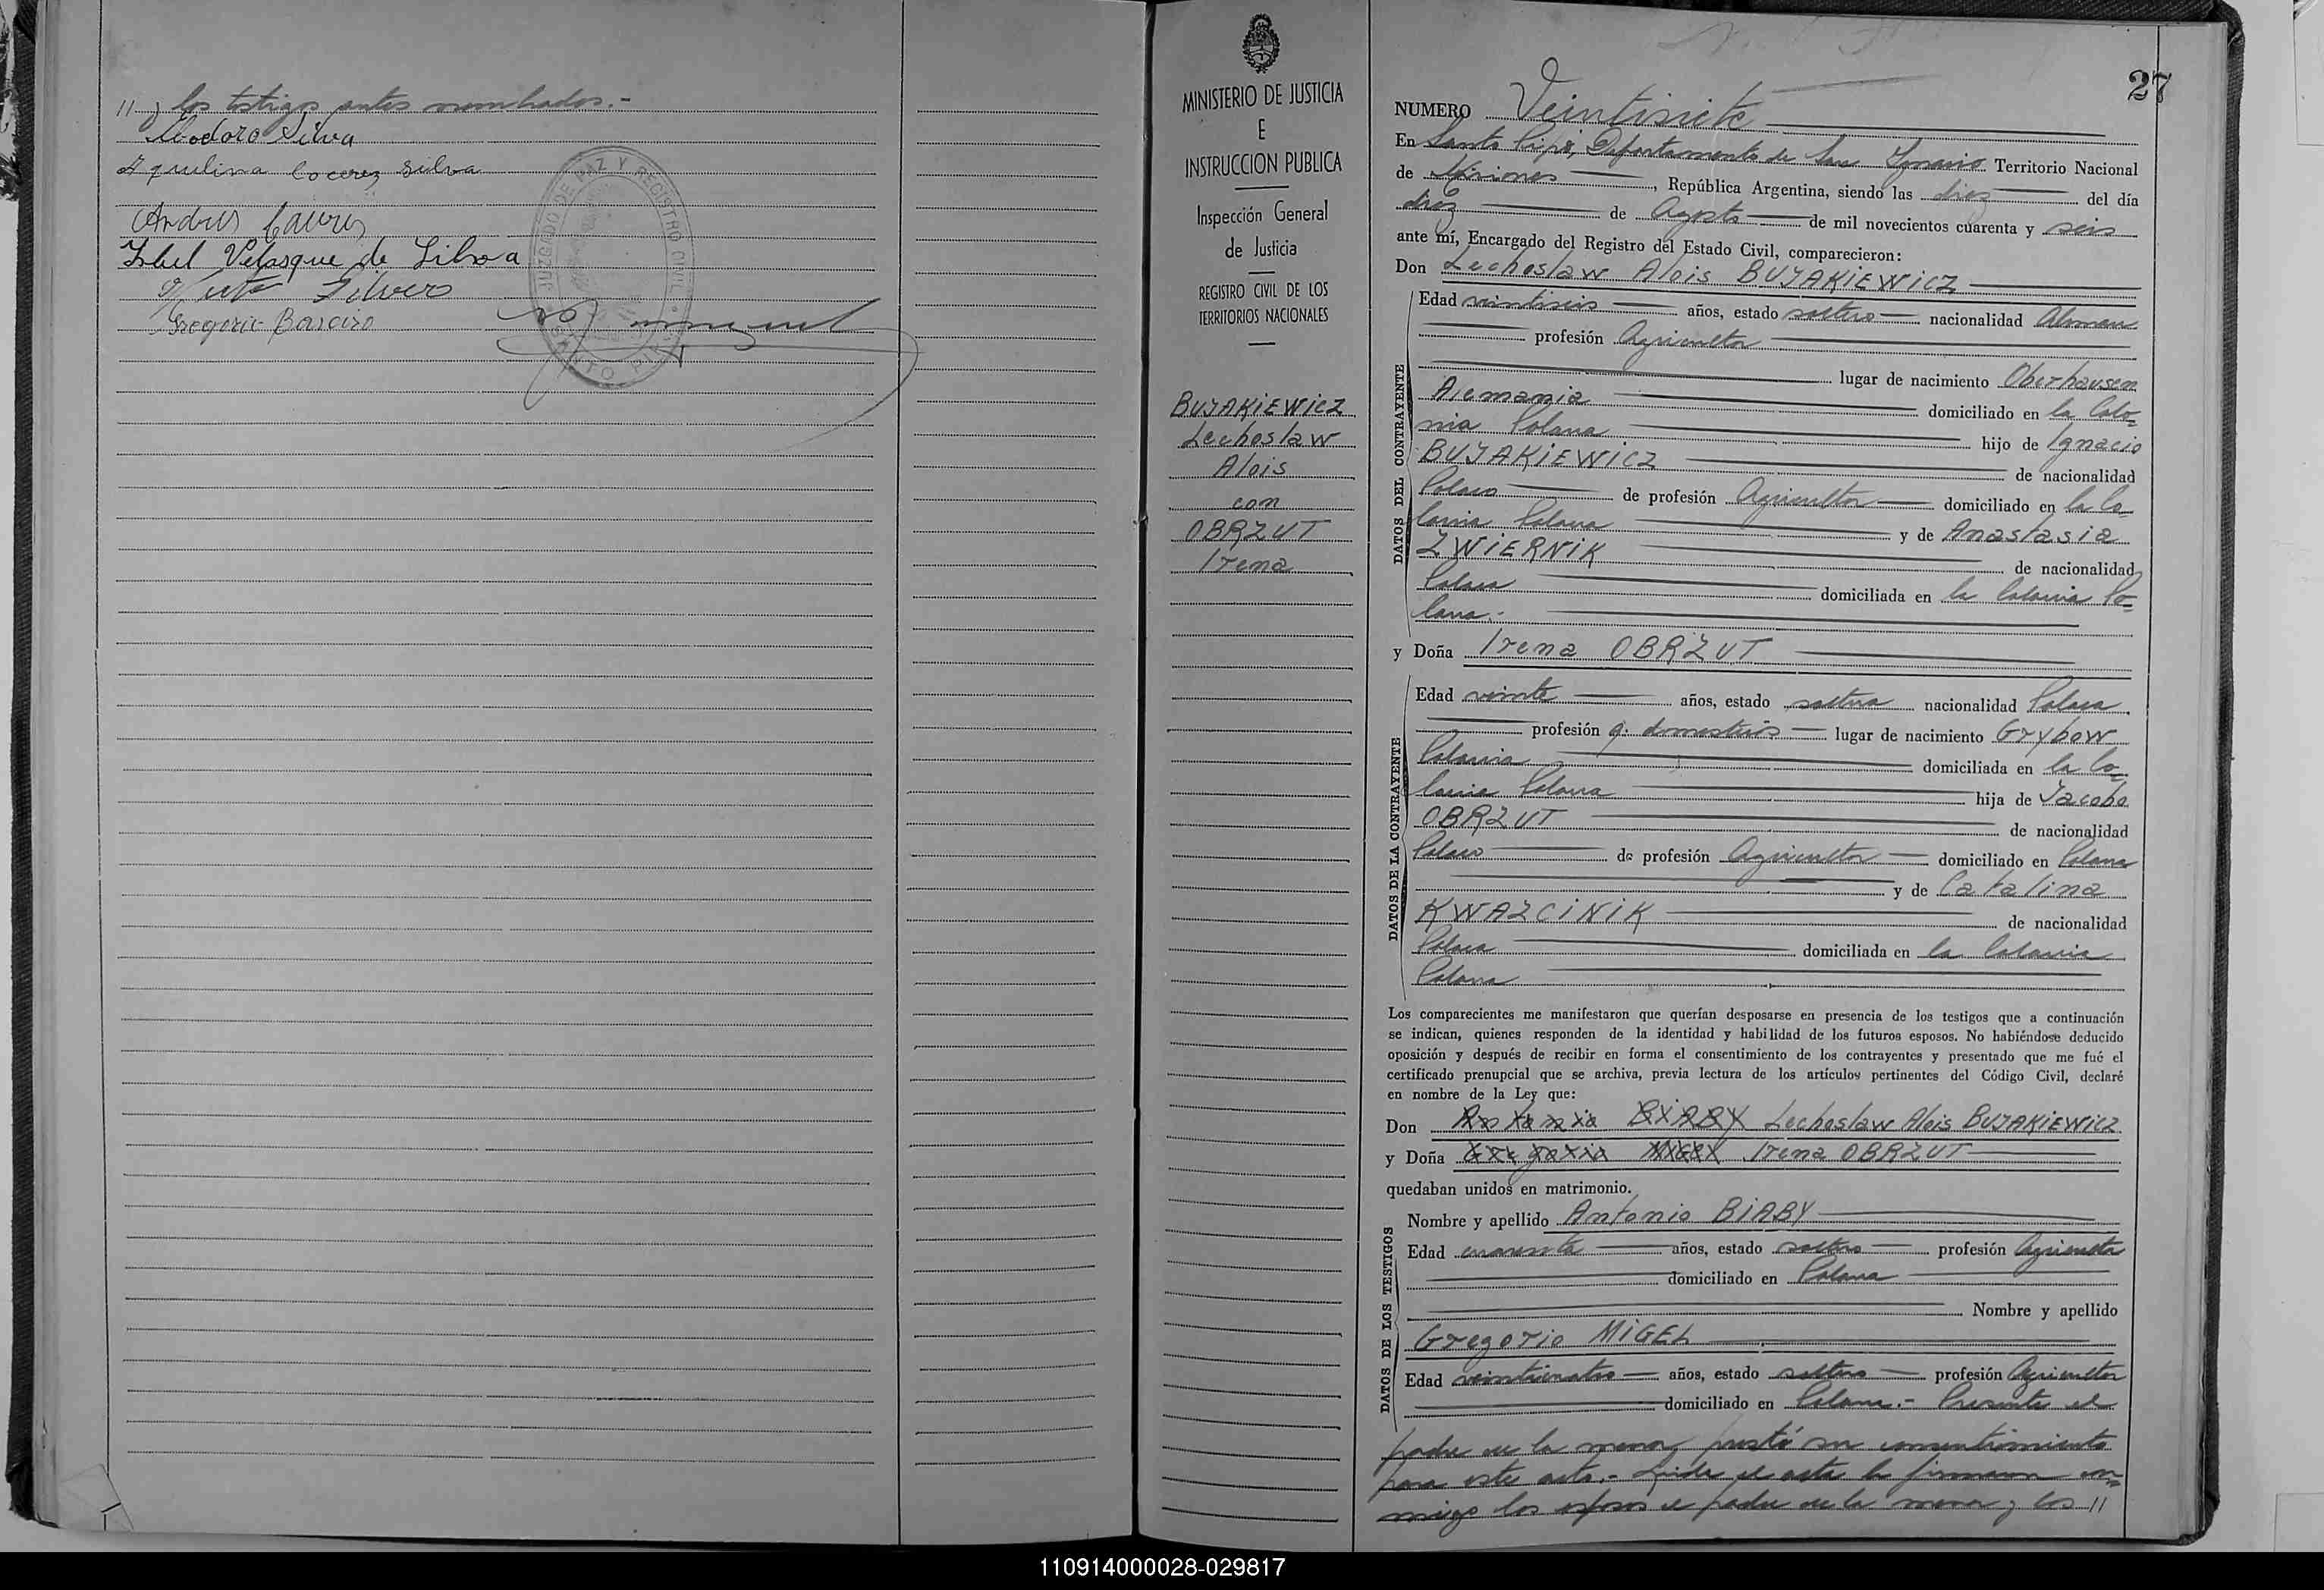 // y los testigos antes nombrados.-
Teodoro Silva
Aquilina Cocerez Silva
Andrés
Isbel Velasque de Silva
Silvero
Gregorio Barreiro
JUZGADO DE PAZ Y REGISTRO CIVIL
SANTO PIPO
MINISTERIO DE JUSTICIA
E
INSTRUCCION PUBLICA
Inspección General
de Justicia
REGISTRO CIVIL DE LOS
TERRITORIOS NACIONALES
BUJAKIEWICZ
Lechoslaw
Alois
con
OBRZUT
Irena
27
NUMERO Veintisiete
En Santo Pipó, Departamento de San Ignacio Territorio Nacional
de Misiones, República Argentina, siendo las diez del día
diez de Agosto de mil novecientos cuarenta y seis
ante mí, Encargado del Registro del Estado Civil, comparecieron:
Don Lechoslaw Alois BUJAKIEWICZ
DATOS DEL CONTRAYENTE
Edad veintiseis años, estado soltero nacionalidad Aleman
profesión Agricultor
lugar de nacimiento Oberhausen
Alemania domiciliado en la Colo=
nia Polana hijo de Ignacio
BUJAKIEWICZ de nacionalidad
Polaco de profesión Agricultor domiciliado en la Co=
lonia Polana y de Anastasia
ZWIERNIK de nacionalidad
Polaca domiciliada en la Colonia Po=
lana.-
y Doña Irena OBRZUT
DATOS DE LA CONTRAYENTE
Edad veinte años, estado soltera nacionalidad Polaca
profesión q. domesticos lugar de nacimiento Grybow
Polonia domiciliada en la Co=
lonia Polana hija de Jacobo
OBRZUT de nacionalidad
Polaco de profesión Agricultor domiciliado en Polana
y de Catalina
KWAZCINIK de nacionalidad
Polaca domiciliada en la Colonia
Polana
Los comparecientes me manifestaron que querían desposarse en presencia de los testigos que a continuación
se indican, quienes responden de la identidad y habilidad de los futuros esposos. No habiéndose deducido
oposición y después de recibir en forma el consentimiento de los contrayentes y presentado que me fué el
certificado prenupcial que se archiva, previa lectura de los artículos pertinentes del Código Civil, declaré
en nombre de la Ley que:
Don Antonio BIABY Lechoslaw Alois BUJAKIEWICZ
y Doña Gregorio MIGEL Irena OBRZUT
quedaban unidos en matrimonio.
DATOS DE LOS TESTIGOS
Nombre y apellido Antonio BIABY
Edad cuarenta años, estado soltero profesión Agricultor
domiciliado en Polana
Nombre y apellido
Gregorio MIGEL
Edad veinticuatro años, estado soltero profesión Agricultor
domiciliado en Polana.- Presente el
padre de la menor, prestó su consentimiento
para este acto.- Leida el acta la firmaron con=
migo los esposos el padre de la menor y los //
110914000028-029817